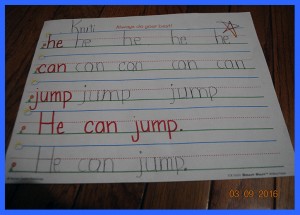 he he he he he
can can can can can
jump jump jump
He can jump.
He can jump.
03 09 2016